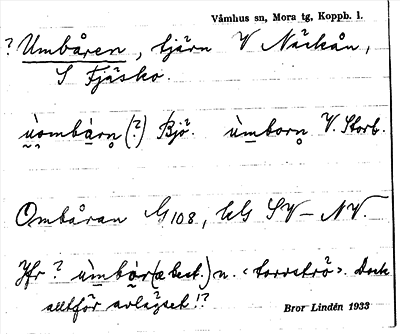 Våmhus sn, Mora tg, Koppb. l.
? Umbåren, tjärn V Näckån,
S Fjäsko.
ùombàrn (?) Bjö. ùmborn V. Storb.
Ombåran G 108, kbl SV – NV.
Jfr ? ùmbòr (obest.) n. ‹torrströ›. Dock
alltför avlägset!?
Bror Lindén 1933